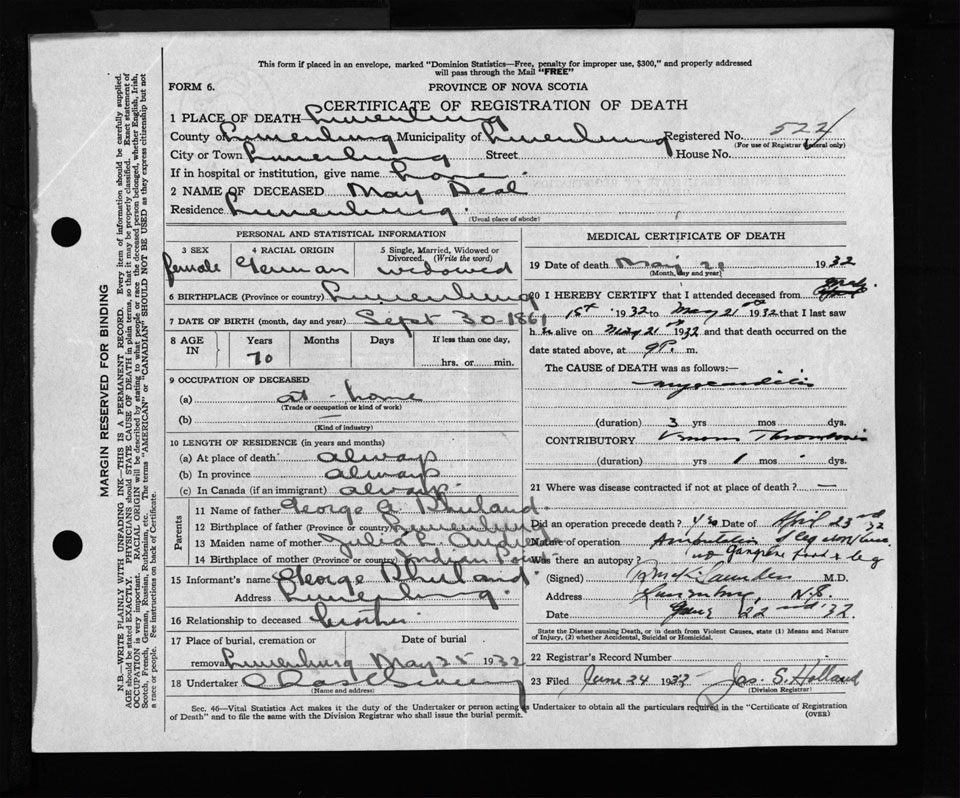 This form if placed in an envelope, marked "Dominion Statistics—Free, penalty for improper use, $300," and properly addressed
will pass through the Mail "FREE"
FORM 6. PROVINCE OF NOVA SCOTIA
CERTIFICATE OF REGISTRATION OF DEATH
1 PLACE OF DEATH Lunenburg
County of Lunenburg Municipality of Lunenburg Registered No. 522
(For use of Registrar General only)
City or Town Lunenburg Street House No.
If in hospital or institution, give name home
2 NAME OF DECEASED May Deal
Residence Lunenburg.
(Usual place of abode)
PERSONAL AND STATISTICAL INFORMATION
3 SEX 4 RACIAL ORIGIN 5 Single, Married, Widowed or
Divorced. (Write the word)
female German widowed
6 BIRTHPLACE (Province or country) Lunenburg
7 DATE OF BIRTH (month, day and year) Sept 30-1861
8 AGE IN Years Months Days If less than one day,
70 hrs. or min.
9 OCCUPATION OF DECEASED
(a) at-home
(Trade or occupation or kind of work)
(b) —
(Kind of industry)
10 LENGTH OF RESIDENCE (in years and months)
(a) At place of death always
(b) In province always
(c) In Canada (if an immigrant) always
Parents
11 Name of father George A. Rhuland.
12 Birthplace of father (Province or country) Lunenburg
13 Maiden name of mother Julia L.
14 Birthplace of mother (Province or country) Indian Point
15 Informant's name George Rhuland.
Address Lunenburg.
16 Relationship to deceased brother
17 Place of burial, cremation or Date of burial
removal Lunenburg May 25 1932
18 Undertaker
(Name and address)
MEDICAL CERTIFICATE OF DEATH
19 Date of death May 21 1932
(Month, day and year)
20 I HEREBY CERTIFY that I attended deceased from
1st 1932 to May 21st 1932 that I last saw
h alive on May 21st 1932 and that death occurred on
date stated above, at 9P. m.
The CAUSE of DEATH was as follows:—
myocarditis
(duration) 3 yrs mos dys.
CONTRIBUTORY Thrombosis
(duration) yrs 1 mos dys.
21 Where was disease contracted if not at place of death? —
Did an operation precede death? yes Date of April 23rd 32
Nature of operation Amputation leg
Was there an autopsy? no Gangrene foot & leg
(Signed) M.D.
Address Lunenburg, N.S.
Date June 22nd '32
State the Disease causing Death, or in death from Violent Causes, state (1) Means and Nature
of Injury, (2) whether Accidental, Suicidal or Homicidal.
22 Registrar's Record Number
23 Filed June 24 1932 Jas. S. Holland
(Division Registrar)
Sec. 46—Vital Statistics Act makes it the duty of the Undertaker or person acting as Undertaker to obtain all the particulars required in the "Certificate of Registration
of Death" and to file the same with the Division Registrar who shall issue the burial permit. (OVER)
MARGIN RESERVED FOR BINDING
N.B.—WRITE PLAINLY WITH UNFADING INK—THIS IS A PERMANENT RECORD. Every item of information should be carefully supplied.
AGE should be stated EXACTLY. PHYSICIANS should STATE CAUSE OF DEATH in plain terms, so that it may be properly classified. Exact statement of
OCCUPATION is very important. RACIAL ORIGIN will be described by stating to what people or race the deceased person belonged, whether English, Irish,
Scotch, French, German, Russian, Ruthenian, etc. The terms "AMERICAN" or "CANADIAN" SHOULD NOT BE USED as they express citizenship but not
a race or people. See instructions on back of Certificate.